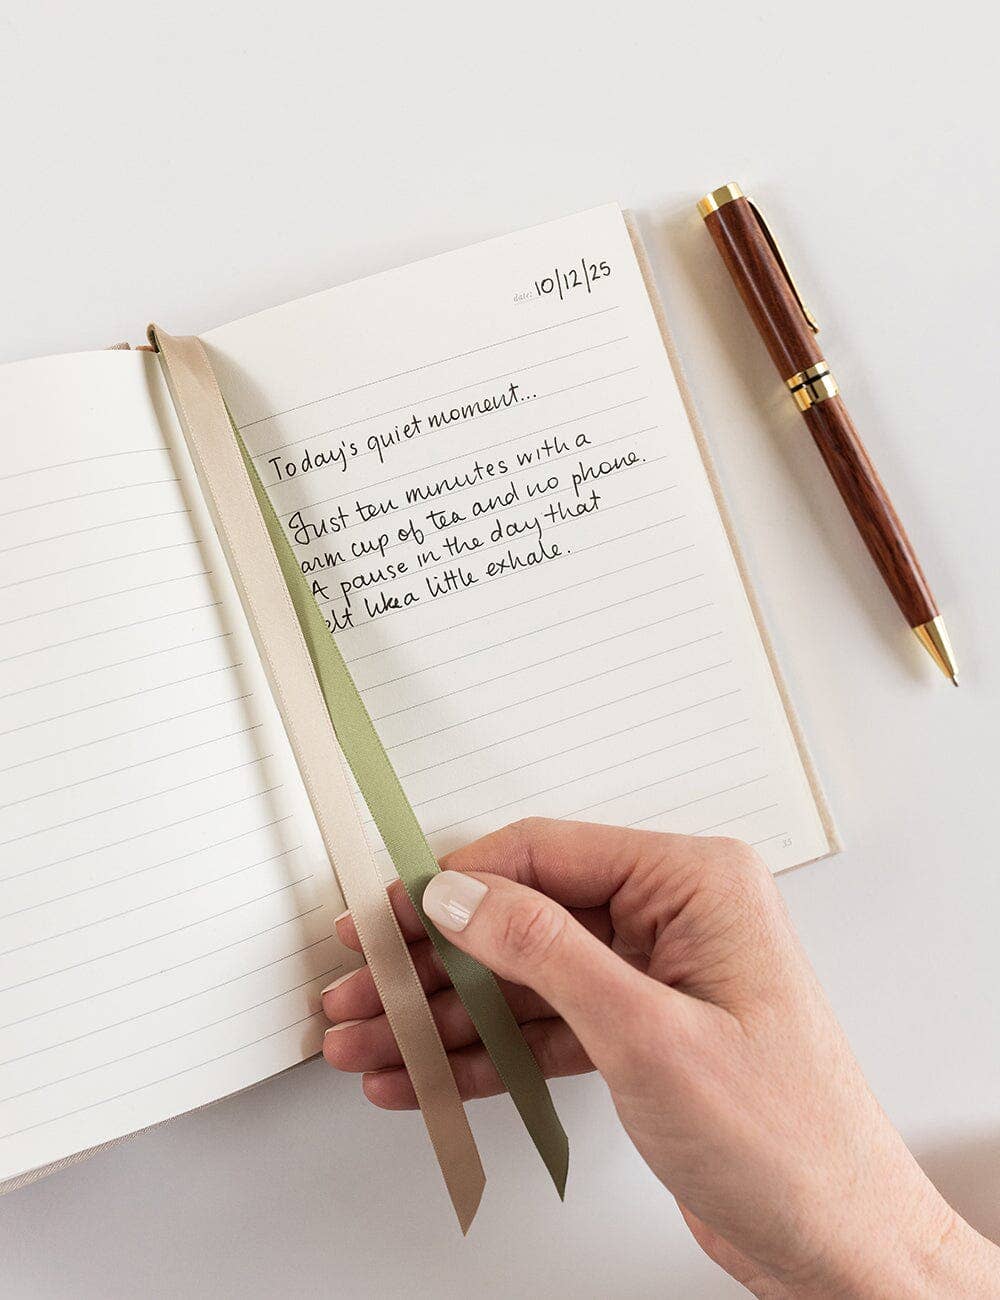 date: 10/12/25
Today's quiet moment...
Just ten minutes with a
arm cup of tea and no phone.
A pause in the day that
elt like a little exhale.
35